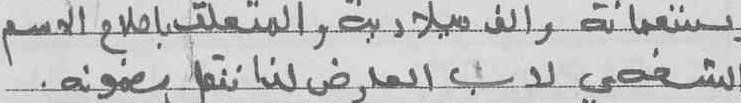 بستعمائة والف ميلادية والمتعلق باصلاح الاسم
الشخصي لاب العارض لنا نتقل بعضونه.